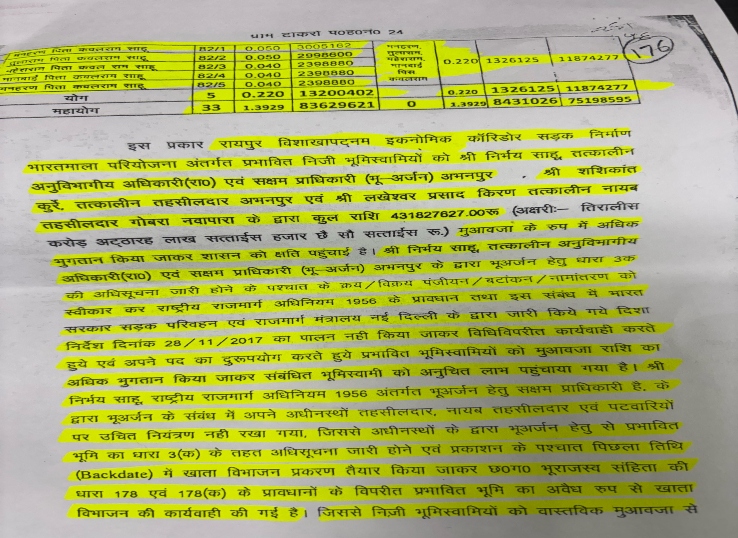 ग्राम टोकरो प०ह०नं० 24
176
मनहरण पिता कवलराम साहू 82/1 0.050 3005162 मनहरण,
तुलाराम पिता कवलराम साहू 82/2 0.050 2998600 तुलाराम, 0.220 1326125 11874277
महेशराम पिता कवल राम साहू 82/3 0.040 2398880 महेशराम,
मानबाई पिता कवलराम साहू 82/4 0.040 2398880 मानबाई पिस
मनहरण पिता कवलराम साहू 82/5 0.040 2398880 कवलराम
योग 5 0.220 13200402 0.220 1326125 11874277
महायोग 33 1.3929 83629621 0 1.3929 8431026 75198595
इस प्रकार रायपुर विशाखापट्नम इकनोमिक कॉरिडोर सड़क निर्माण
भारतमाला परियोजना अंतर्गत प्रभावित निजी भूमिस्वामियों को श्री निर्भय साहू, तत्कालीन
अनुविभागीय अधिकारी(रा०) एवं सक्षम प्राधिकारी (भू–अर्जन) अभनपुर श्री शशिकांत
कुर्रे, तत्कालीन तहसीलदार अभनपुर एवं श्री लखेश्वर प्रसाद किरण तत्कालीन नायब
तहसीलदार गोबरा नवापारा के द्वारा कुल राशि 431827627.00रू (अक्षरीः– तिरालीस
करोड़ अट्ठारह लाख सत्ताईस हजार छै सौ सत्ताईस रू.) मुआवजा के रुप में अधिक
भुगतान किया जाकर शासन को क्षति पहुंचाई है। श्री निर्भय साहू, तत्कालीन अनुविभागीय
अधिकारी(रा०) एवं सक्षम प्राधिकारी (भू–अर्जन) अभनपुर के द्वारा भूअर्जन हेतु धारा 3क
की अधिसूचना जारी होने के पश्चात के क्रय/विक्रय पंजीयन/बटांकन/नामांतरण को
स्वीकार कर राष्ट्रीय राजमार्ग अधिनियम 1956 के प्रावधान तथा इस संबंध में भारत
सरकार सड़क परिवहन एवं राजमार्ग मंत्रालय नई दिल्ली के द्वारा जारी किये गये दिशा
निर्देश दिनांक 28/11/2017 का पालन नही किया जाकर विधिविपरीत कार्यवाही करते
हुये एवं अपने पद का दुरूपयोग करते हुये प्रभावित भूमिस्वामियों को मुआवजा राशि का
अधिक भुगतान किया जाकर संबंधित भूमिस्वामी को अनुचित लाभ पहुंचाया गया है। श्री
निर्भय साहू, राष्ट्रीय राजमार्ग अधिनियम 1956 अंतर्गत भूअर्जन हेतु सक्षम प्राधिकारी है, के
द्वारा भूअर्जन के संबंध में अपने अधीनस्थों तहसीलदार, नायब तहसीलदार एवं पटवारियों
पर उचित नियंत्रण नही रखा गया, जिससे अधीनस्थों के द्वारा भूअर्जन हेतु से प्रभावित
भूमि का धारा 3(क) के तहत अधिसूचना जारी होने एवं प्रकाशन के पश्चात पिछला तिथि
(Backdate) में खाता विभाजन प्रकरण तैयार किया जाकर छ०ग० भूराजस्व संहिता की
धारा 178 एवं 178(क) के प्रावधानों के विपरीत प्रभावित भूमि का अवैध रुप से खाता
विभाजन की कार्यवाही की गई है। जिससे निजी भूमिस्वामियों को वास्तविक मुआवजा से